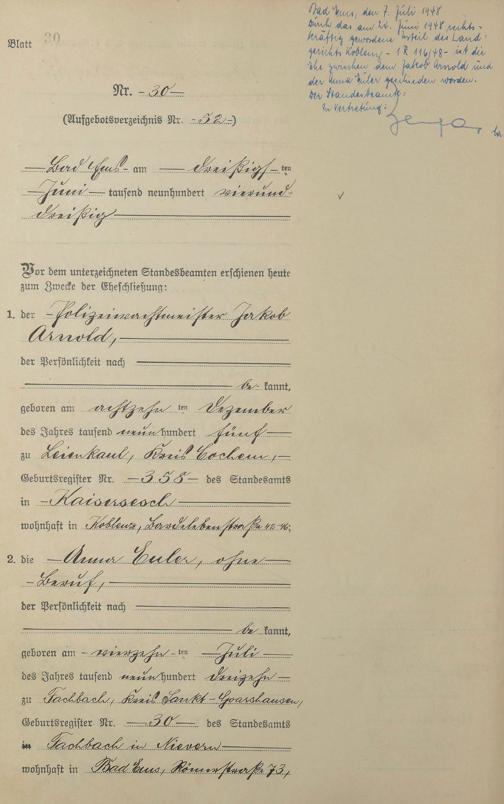 Bad Ems, den 7. Juli 1948
Durch das am 24. Juni 1948 rechts-
kräftig gewordene Urteil des Land-
gerichts Koblenz - 1 R 116/48 - ist die
Ehe zwischen dem Jakob Arnold und
der Anna Euler geschieden worden.
Der Standesbeamte:
In Vertretung:
Blatt 30
Nr. - 30 -
(Aufgebotsverzeichnis Nr. - 32 -)
Bad Ems - am - dreißigsten
Juni - tausend neunhundert vierund-
dreißig
Vor dem unterzeichneten Standesbeamten erschienen heute
zum Zwecke der Eheschließung:
1. der - Polizeiwachtmeister Jakob
Arnold,
der Persönlichkeit nach
be kannt,
geboren am achtzehnten Dezember
des Jahres tausend neunhundert fünf
zu Leienkaul, Kreis Cochem,
Geburtsregister Nr. - 358 - des Standesamts
in - Kaisersesch
wohnhaft in Koblenz, Bardelebenstraße
2. die - Anna Euler, ohne
- Beruf,
der Persönlichkeit nach
be kannt,
geboren am - vierzehnten - Juli
des Jahres tausend neunhundert dreizehn
zu Fachbach, Kreis Sankt-Goarshausen,
Geburtsregister Nr. - 30 - des Standesamts
in Fachbach in Nievern
wohnhaft in Bad Ems, Römerstraße 73,